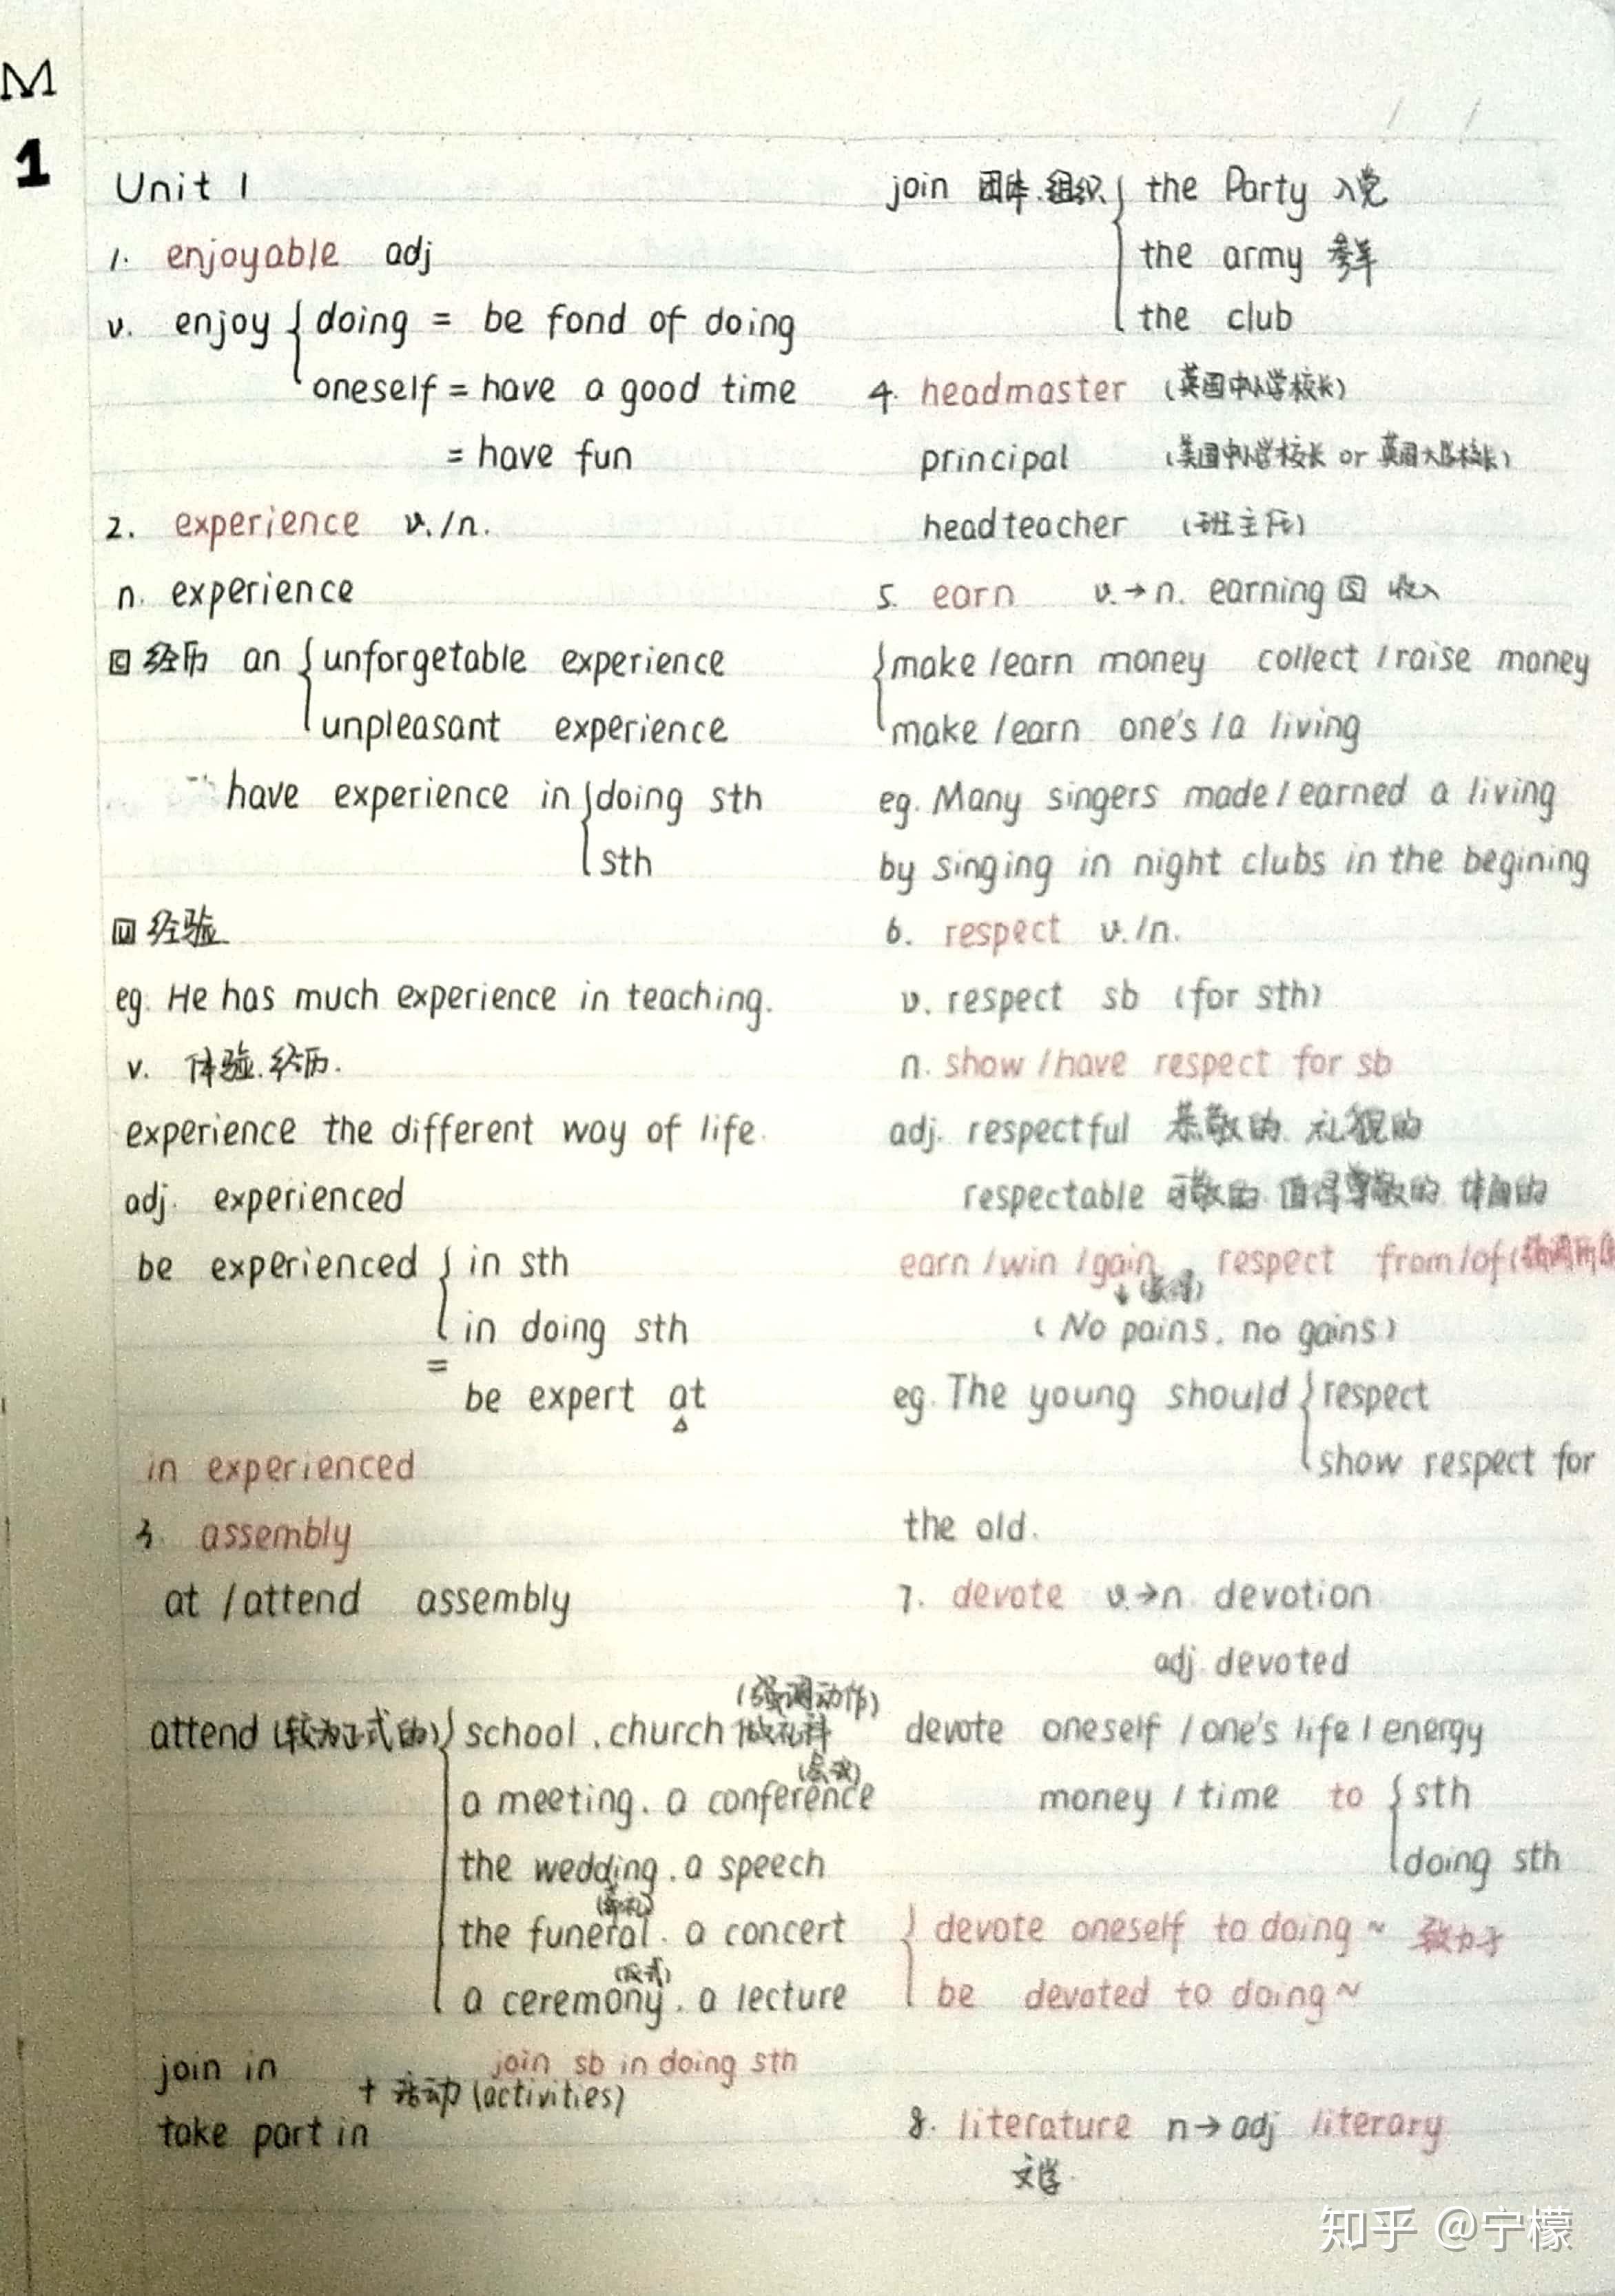 M
1
Unit 1
1. enjoyable adj
v. enjoy { doing = be fond of doing
oneself = have a good time
= have fun
2. experience v./n.
n. experience
C 经历 an { unforgetable experience
unpleasant experience
have experience in { doing sth
sth
U 经验
eg. He has much experience in teaching.
v. 体验.经历.
experience the different way of life.
adj. experienced
be experienced { in sth
in doing sth
=
be expert at
in experienced
3. assembly
at / attend assembly
(强调动作)
attend (较为正式的) { school . church 做礼拜
(会议)
a meeting. a conference
the wedding. a speech
(葬礼)
the funeral. a concert
(仪式)
a ceremony. a lecture
join in
join sb in doing sth
+ 活动 (activities)
take part in
join 团体.组织 { the Party 入党
the army 参军
the club
4. headmaster (英国中小学校长)
principal (美国中小学校长 or 英国大学校长)
headteacher (班主任)
5. earn v.→n. earning 收入
{ make / earn money collect / raise money
make / earn one's / a living
eg. Many singers made / earned a living
by singing in night clubs in the begining
6. respect v./n.
v. respect sb (for sth)
n. show / have respect for sb
adj. respectful 恭敬的 礼貌的
respectable 可敬的 值得尊敬的 体面的
earn / win / gain respect from/of (强调所
↓ (获得)
(No pains, no gains)
eg. The young should { respect
show respect for
the old.
7. devote v.→n. devotion
adj. devoted
devote oneself / one's life / energy
money / time to { sth
doing sth
{ devote oneself to doing ~ 致力于
be devoted to doing ~
8. literature n→adj literary
文学.
知乎 @宁檬